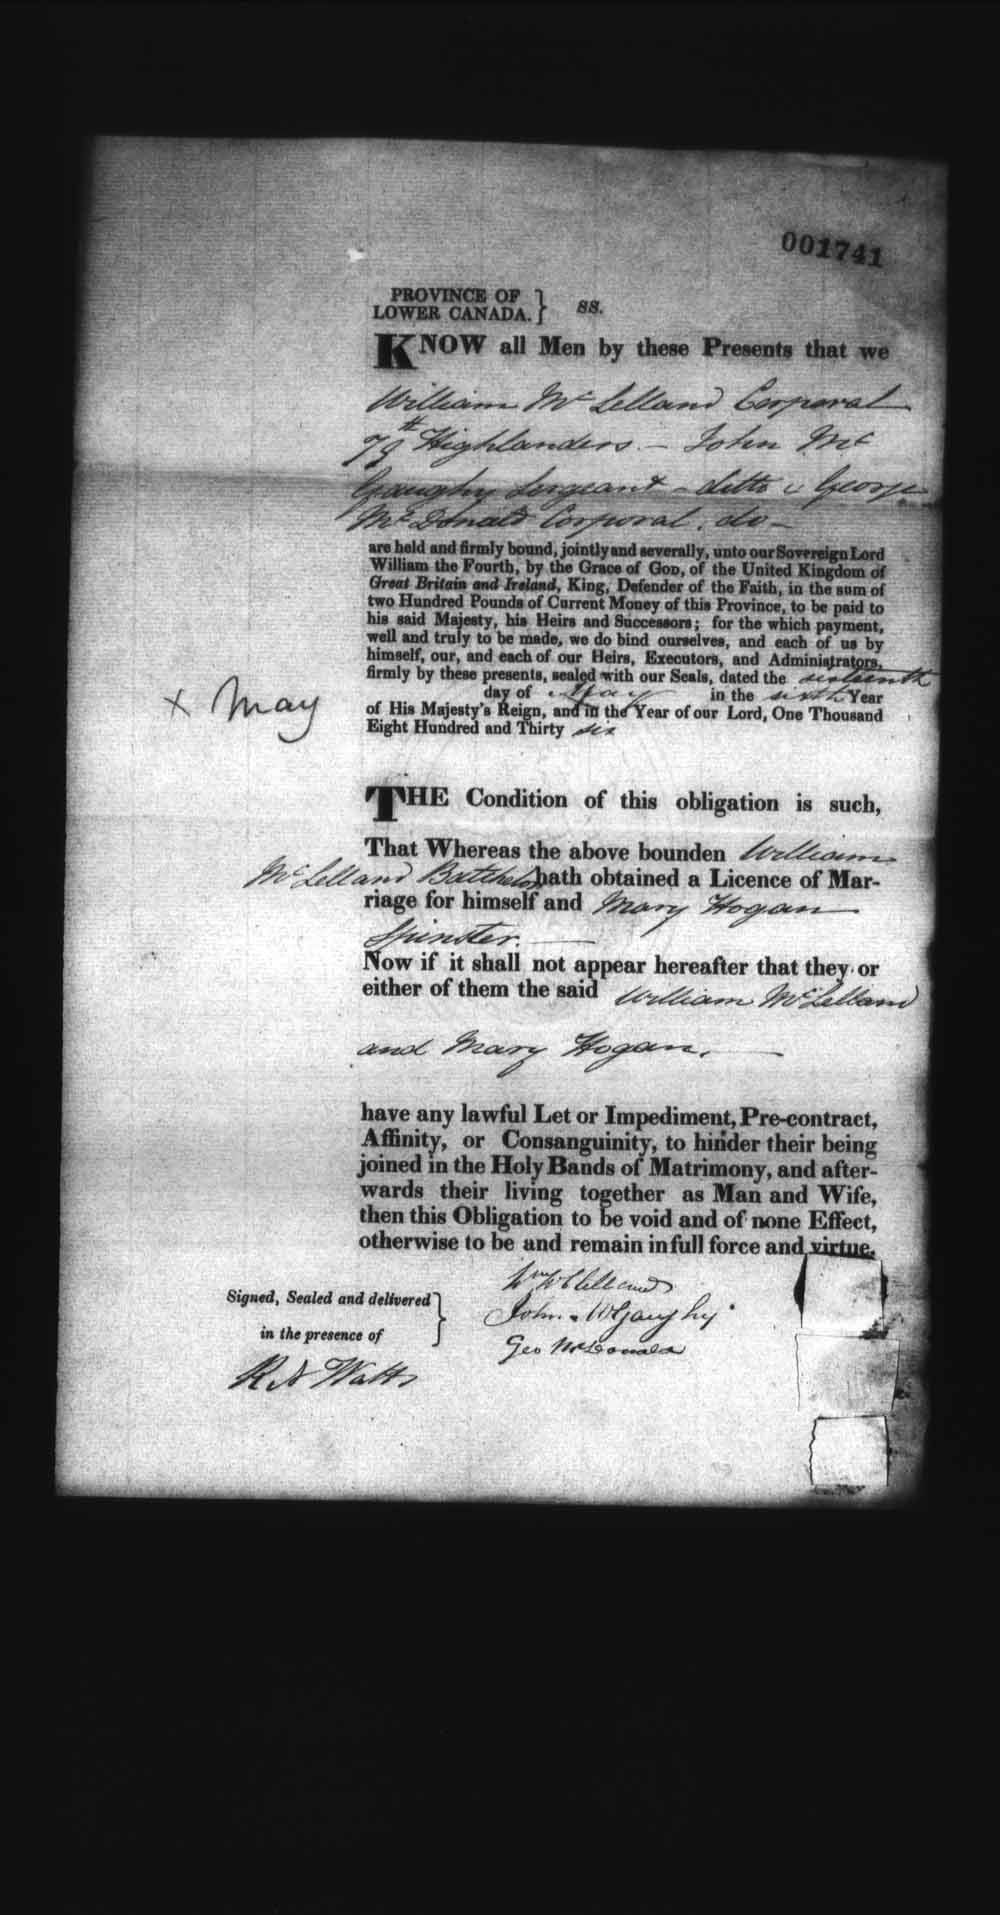 001741
PROVINCE OF
LOWER CANADA. } ss.
KNOW all Men by these Presents that we
William McLelland Corporal
79th Highlanders – John Mc
Gaughy Sergeant – ditto & George
McDonald Corporal. do –
are held and firmly bound, jointly and severally, unto our Sovereign Lord
William the Fourth, by the Grace of GOD, of the United Kingdom of
Great Britain and Ireland, King, Defender of the Faith, in the sum of
two Hundred Pounds of Current Money of this Province, to be paid to
his said Majesty, his Heirs and Successors; for the which payment,
well and truly to be made, we do bind ourselves, and each of us by
himself, our, and each of our Heirs, Executors, and Administrators,
firmly by these presents, sealed with our Seals, dated the sixteenth
day of May in the sixth Year
x May
of His Majesty's Reign, and in the Year of our Lord, One Thousand
Eight Hundred and Thirty six
THE Condition of this obligation is such,
That Whereas the above bounden William
McLelland Batchelor hath obtained a Licence of Mar-
riage for himself and Mary Hogan
Spinster.
Now if it shall not appear hereafter that they or
either of them the said William McLelland
and Mary Hogan.
have any lawful Let or Impediment, Pre-contract,
Affinity, or Consanguinity, to hinder their being
joined in the Holy Bands of Matrimony, and after-
wards their living together as Man and Wife,
then this Obligation to be void and of none Effect,
otherwise to be and remain in full force and virtue.
Wm McClelland
Signed, Sealed and delivered }
John McGaughy
in the presence of
Geo McDonald
R A Watts